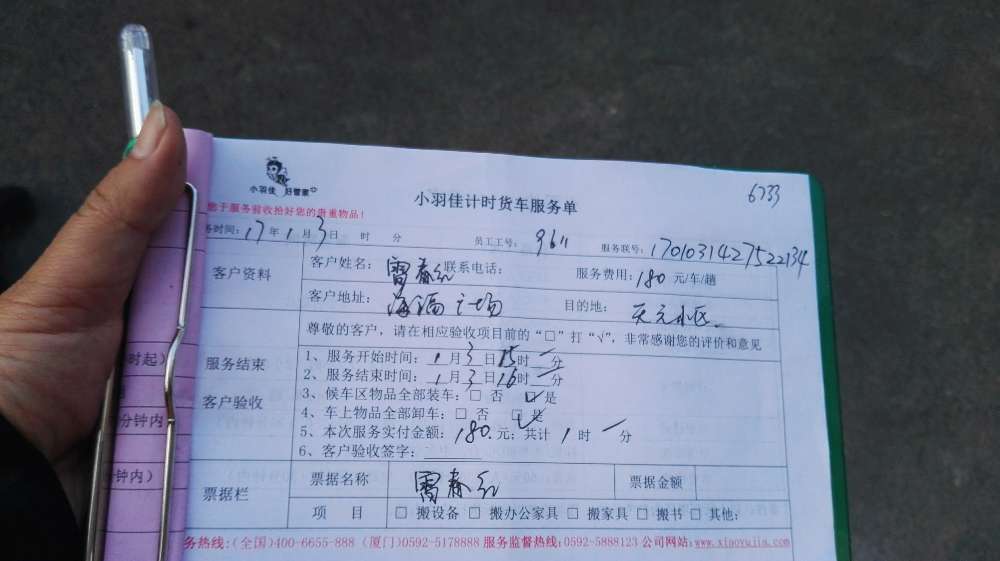 6733
小羽佳 好管家
小羽佳计时货车服务单
您于服务验收拾好您的贵重物品!
务时间: 17年 1月 3日 时 分 员工工号: 9611 服务联号: 17010314275 22134
客户资料
客户姓名: 雷春红 联系电话: 服务费用: 180 元/车/趟
客户地址: 海湾广场 目的地: 天元小区
尊敬的客户,请在相应验收项目前的“□”打“√”,非常感谢您的评价和意见
服务结束
客户验收
1、服务开始时间: 1月3日15时一分
2、服务结束时间: 1月3日16时一分
3、候车区物品全部装车: □ 否 □是
4、车上物品全部卸车: □ 否 □是
5、本次服务实付金额: 180.元; 共计 1时 一分
6、客户验收签字:
票据栏
票据名称 雷春红 票据金额
项 目 □ 搬设备 □ 搬办公家具 □ 搬家具 □ 搬书 □ 其他:
务热线:(全国)400-6655-888 (厦门)0592-5178888 服务监督热线:0592-5888123 公司网站:www.xiaoyujia.com
时起)
分钟内
钟内)